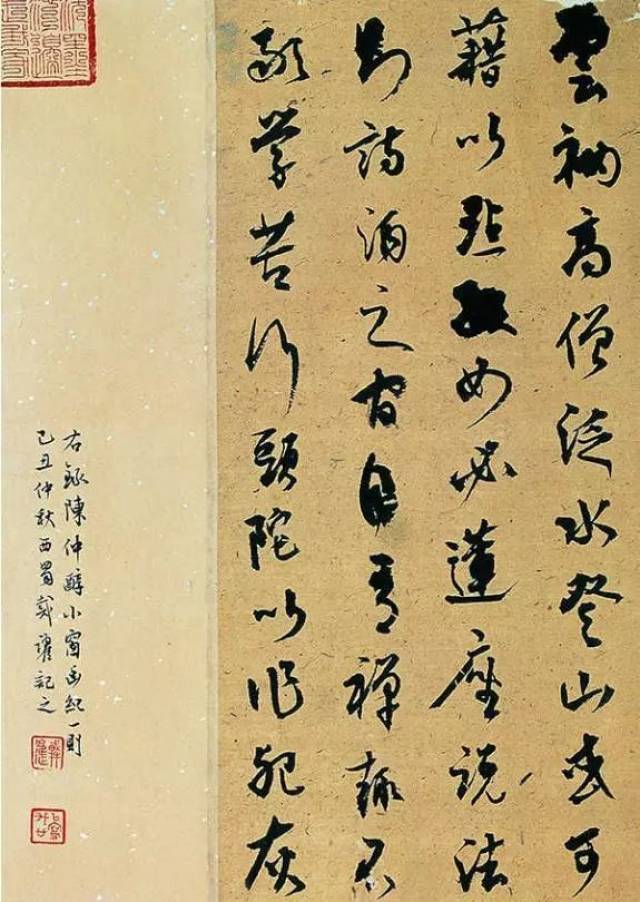 雲衲高僧泛水登山或可
藉以點綴如必蓮座說法
則詩酒之間自有禪趣不
敢學苦行頭陀以作死灰
右錄陳仲醇小窗幽紀一則
己丑仲秋西蜀戴記之